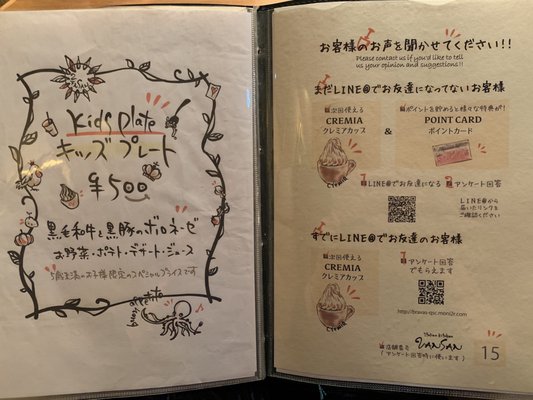 Kids Plate
キッズプレート
¥500
黒毛和牛と黒豚のボロネーゼ
お野菜・ポテト・デザート・ジュース
5歳未満のお子様限定のスペシャルプライスです
お客様のお声を聞かせてください!!
Please contact us if you'd like to tell
us your opinion and suggestions!!
まだLINE@でお友達になってないお客様
次回使える
CREMIA
クレミアカップ
&
ポイントを貯めると様々な特典が!
POINT CARD
ポイントカード
CREMIA
1 LINE@でお友達になる 2 アンケート回答
LINE@から
届いたリンクを
ご確認ください
すでにLINE@でお友達のお客様
次回使える
CREMIA
クレミアカップ
アンケート回答
でもらえます
CREMIA
Italian Kitchen
VANSAN
店舗番号
15
(アンケート回答時に使います)